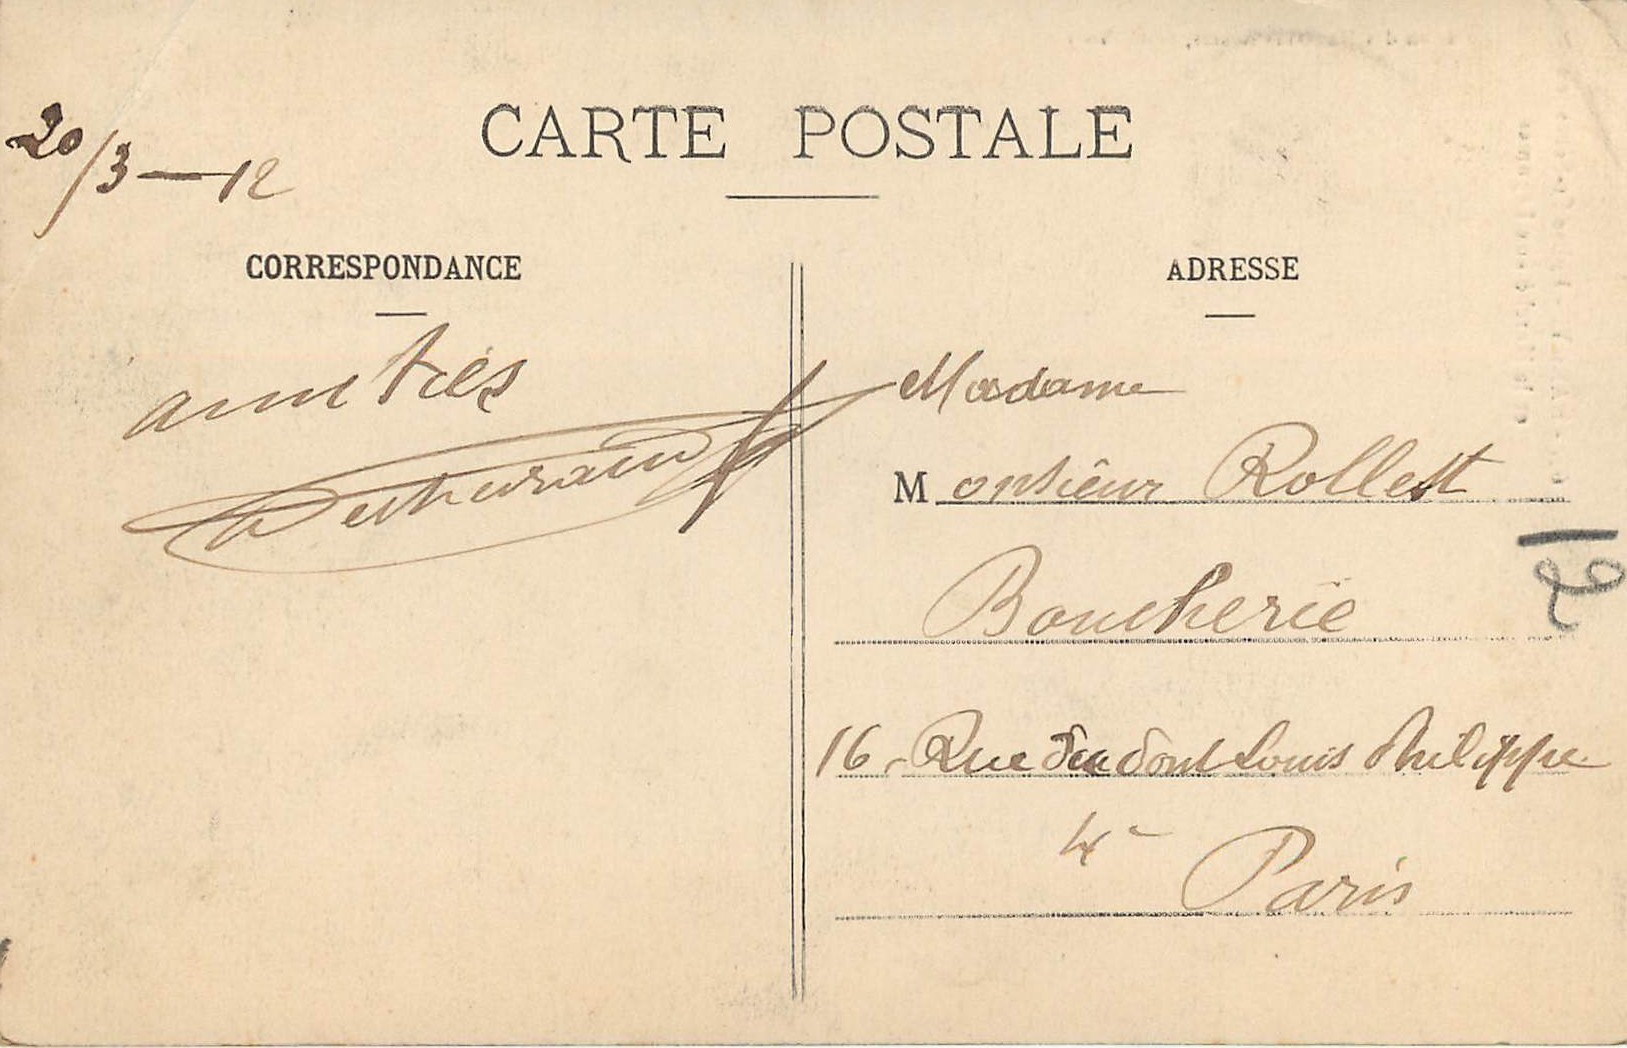 CARTE POSTALE
20/3 — 12
CORRESPONDANCE
amitiés
ADRESSE
Madame
Monsieur Rollest
Boucherie
16, Rue du Pont Louis Philippe
4e
Paris
12